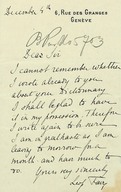 December 4th
6, RUE DES GRANGES
GENÈVE
Dear Sir
I cannot remember whether
I wrote already to you
about your Dictionnary
I shall be glad to have
it in my possession. Therefore
I write again to be sure.
I am
leaving to morrow for a
month and have much to
do. Yours very sincerely